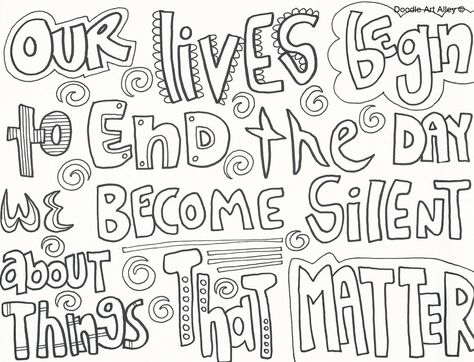 Doodle Art Alley ©
OUR LIVES BEGIN
to End the DAY
WE BECOME SILENT
about
THINGS THAT MATTER